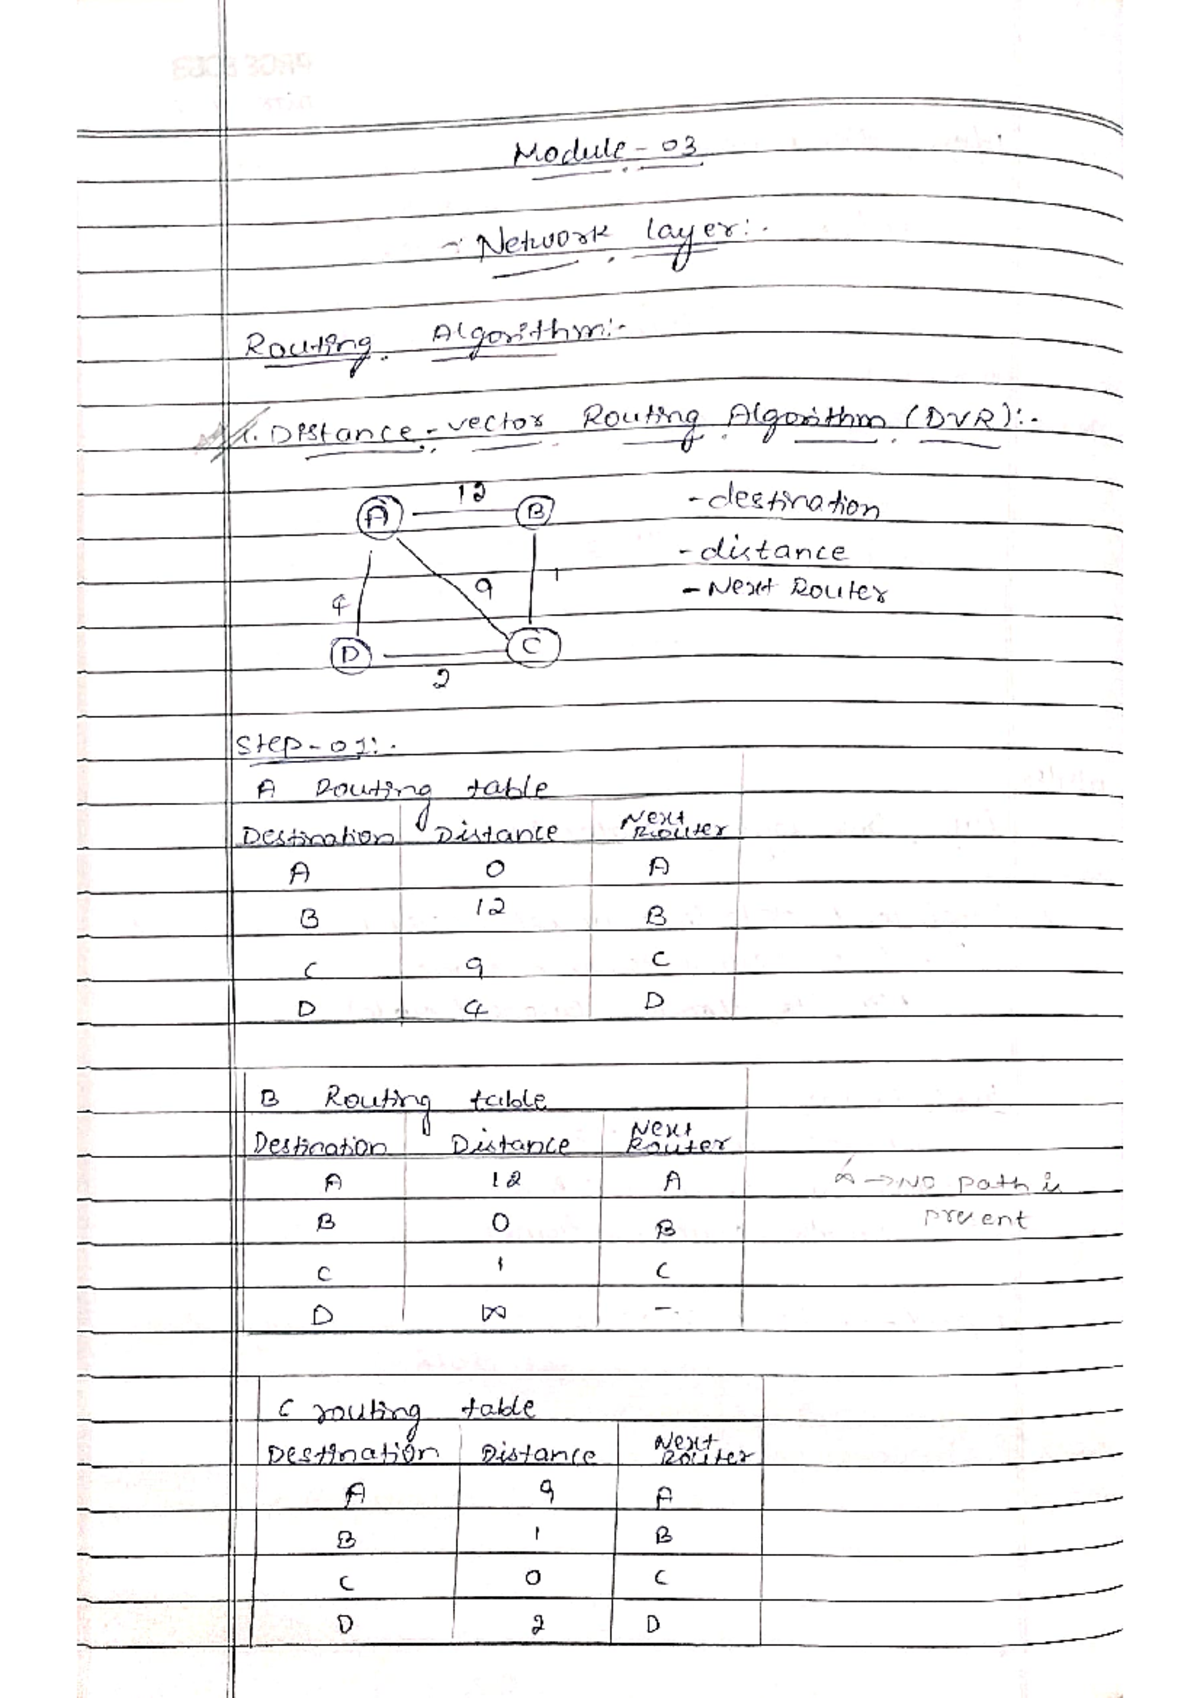 Module - 03
- Network layer:-
Routing Algorithm:-
1. Distance - vector Routing Algorithm (DVR):-
A 12 B
- destination
- distance
- Next Router
4 9 1
D C
2
Step - 01:-
A Routing table
Destination Distance Next Router
A 0 A
B 12 B
C 9 C
D 4 D
B Routing table
Destination Distance Next Router
A 12 A
∞ → No path is
present
B 0 B
C 1 C
D ∞ -
C routing table
Destination Distance Next Router
A 9 A
B 1 B
C 0 C
D 2 D